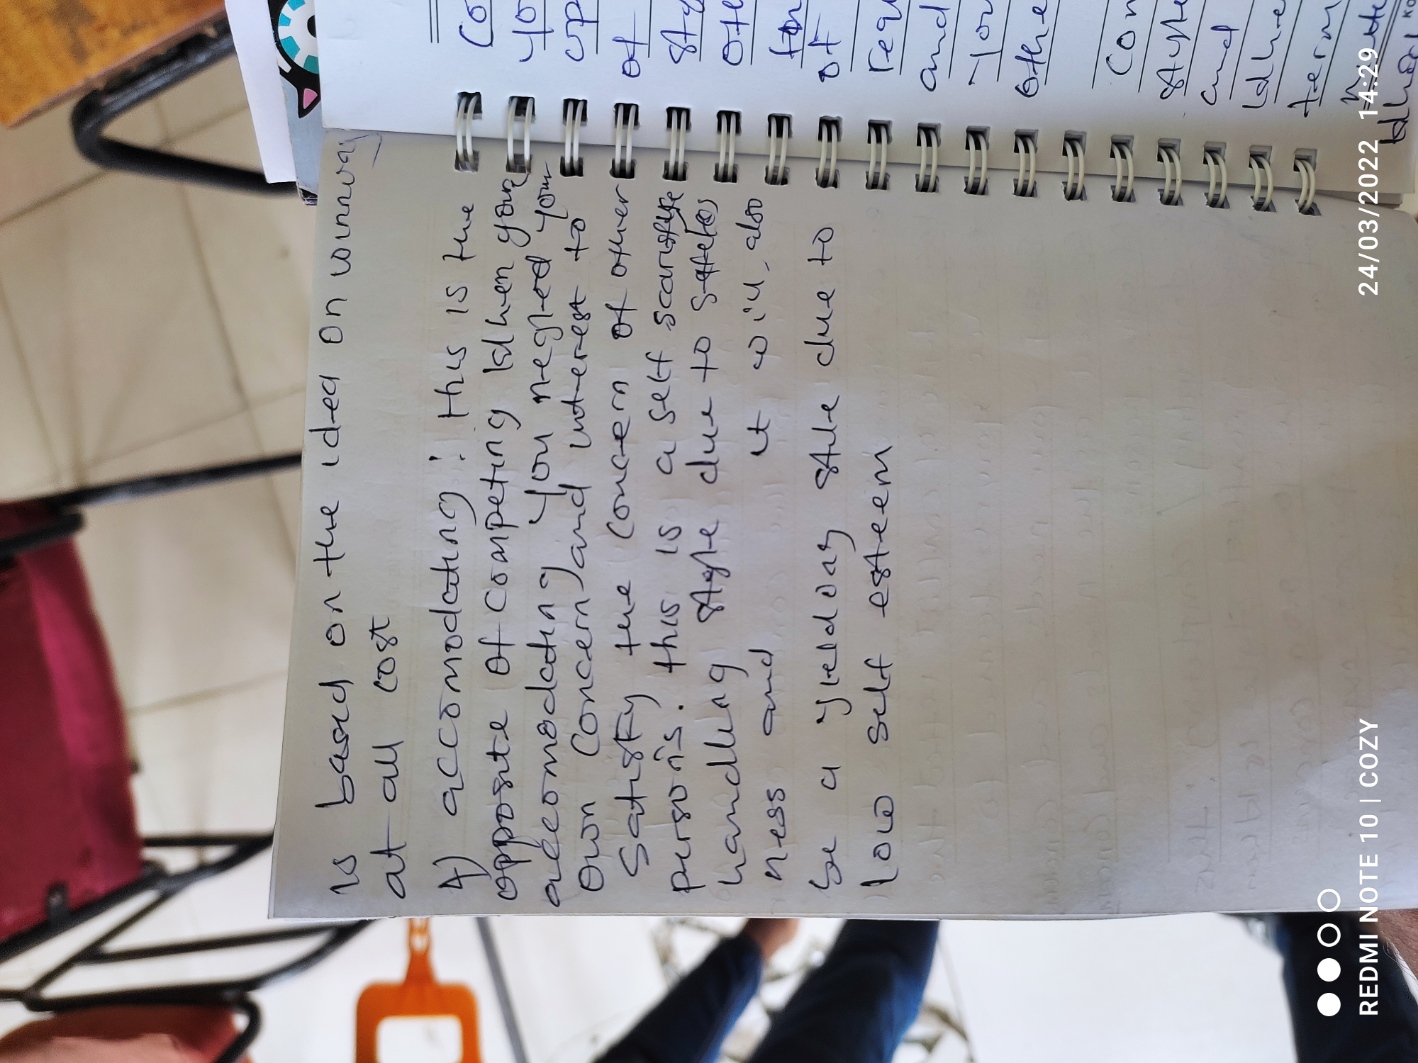 is based on the idea on winning
at all cost
4) accomodating: this is the
opposite of competing When your
accomodating you negled your
own concern and interest to
Satisfy the concern of other
person's. this is a self
handling style due to
ness and it will also
be a yielding stile due to
low self esteem
Co
yo
op
of
sty
oth
of
requ
and
you
othe
Con
style
and
Whe
term
REDMI NOTE 10 | COZY
24/03/2022 14:29